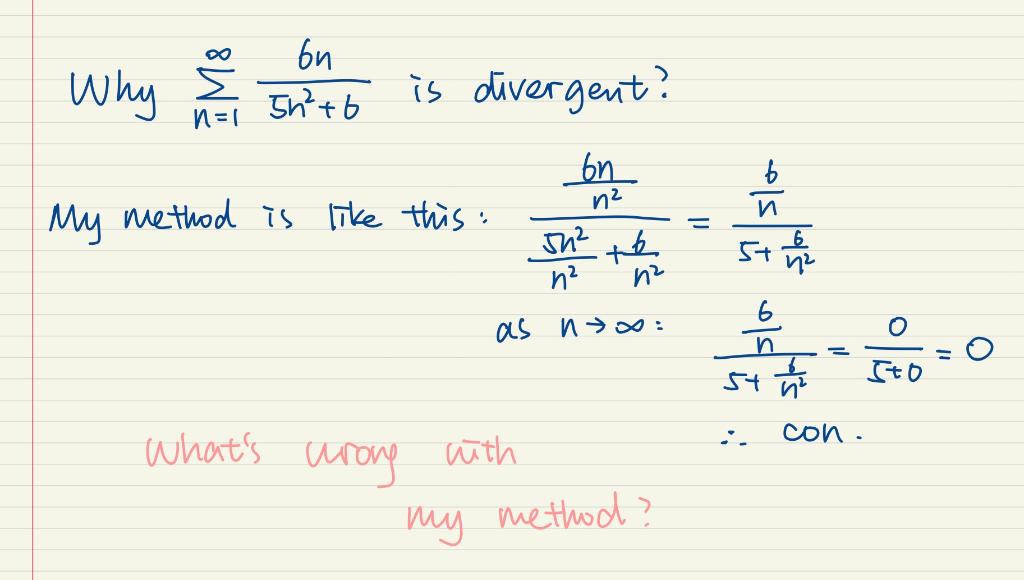 Why \sum_{n=1}^{\infty} \frac{6n}{5n^2+6} is divergent?
My method is like this: \frac{\frac{6n}{n^2}}{\frac{5n^2}{n^2}+\frac{6}{n^2}} = \frac{\frac{6}{n}}{5+\frac{6}{n^2}}
as n→∞: \frac{\frac{6}{n}}{5+\frac{6}{n^2}} = \frac{0}{5+0} = 0
∴ con.
What's wrong with
my method?